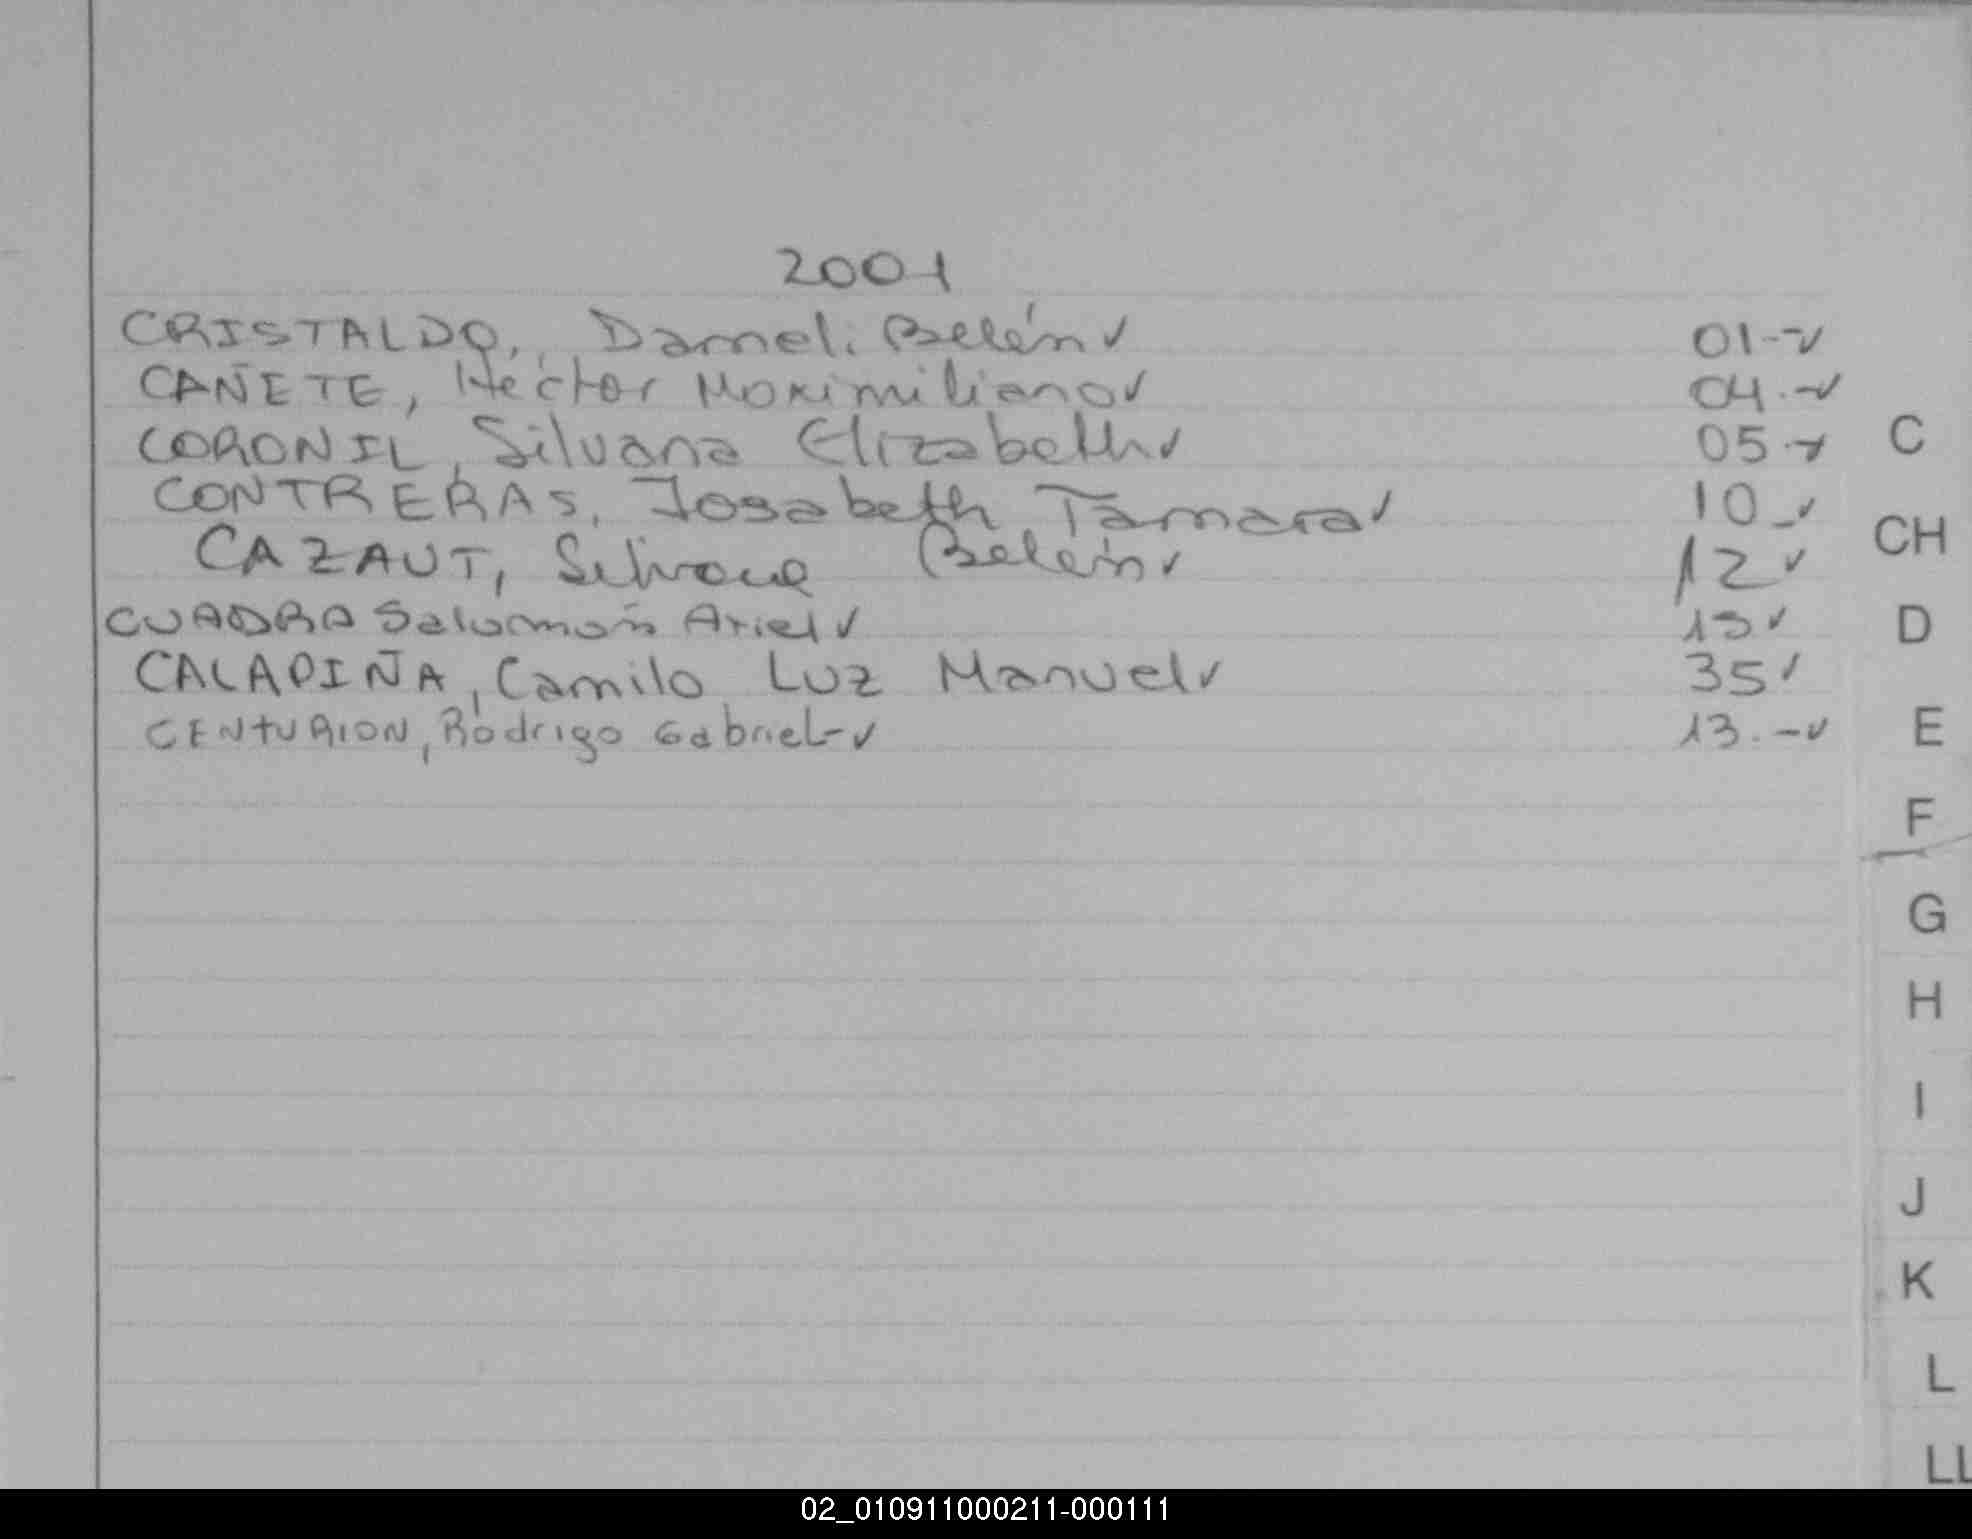 2001
CRISTALDO, Darneli Belén ✓ 01.-✓
CAÑETE, Héctor Maximiliano ✓ 04.-✓
CORONIL, Silvana Elizabeth ✓ 05.-✓
CONTRERAS, Josabeth Tamara ✓ 10_✓
CAZAUT, Silvana Belén ✓ 12 ✓
CUADRA Salomón Ariel ✓ ✓
CALADIÑA, Camilo Luz Manuel ✓ 35 ✓
CENTURION, Rodrigo Gabriel-✓ 13.-✓
C
CH
D
E
F
G
H
I
J
K
L
LL
02_010911000211-000111